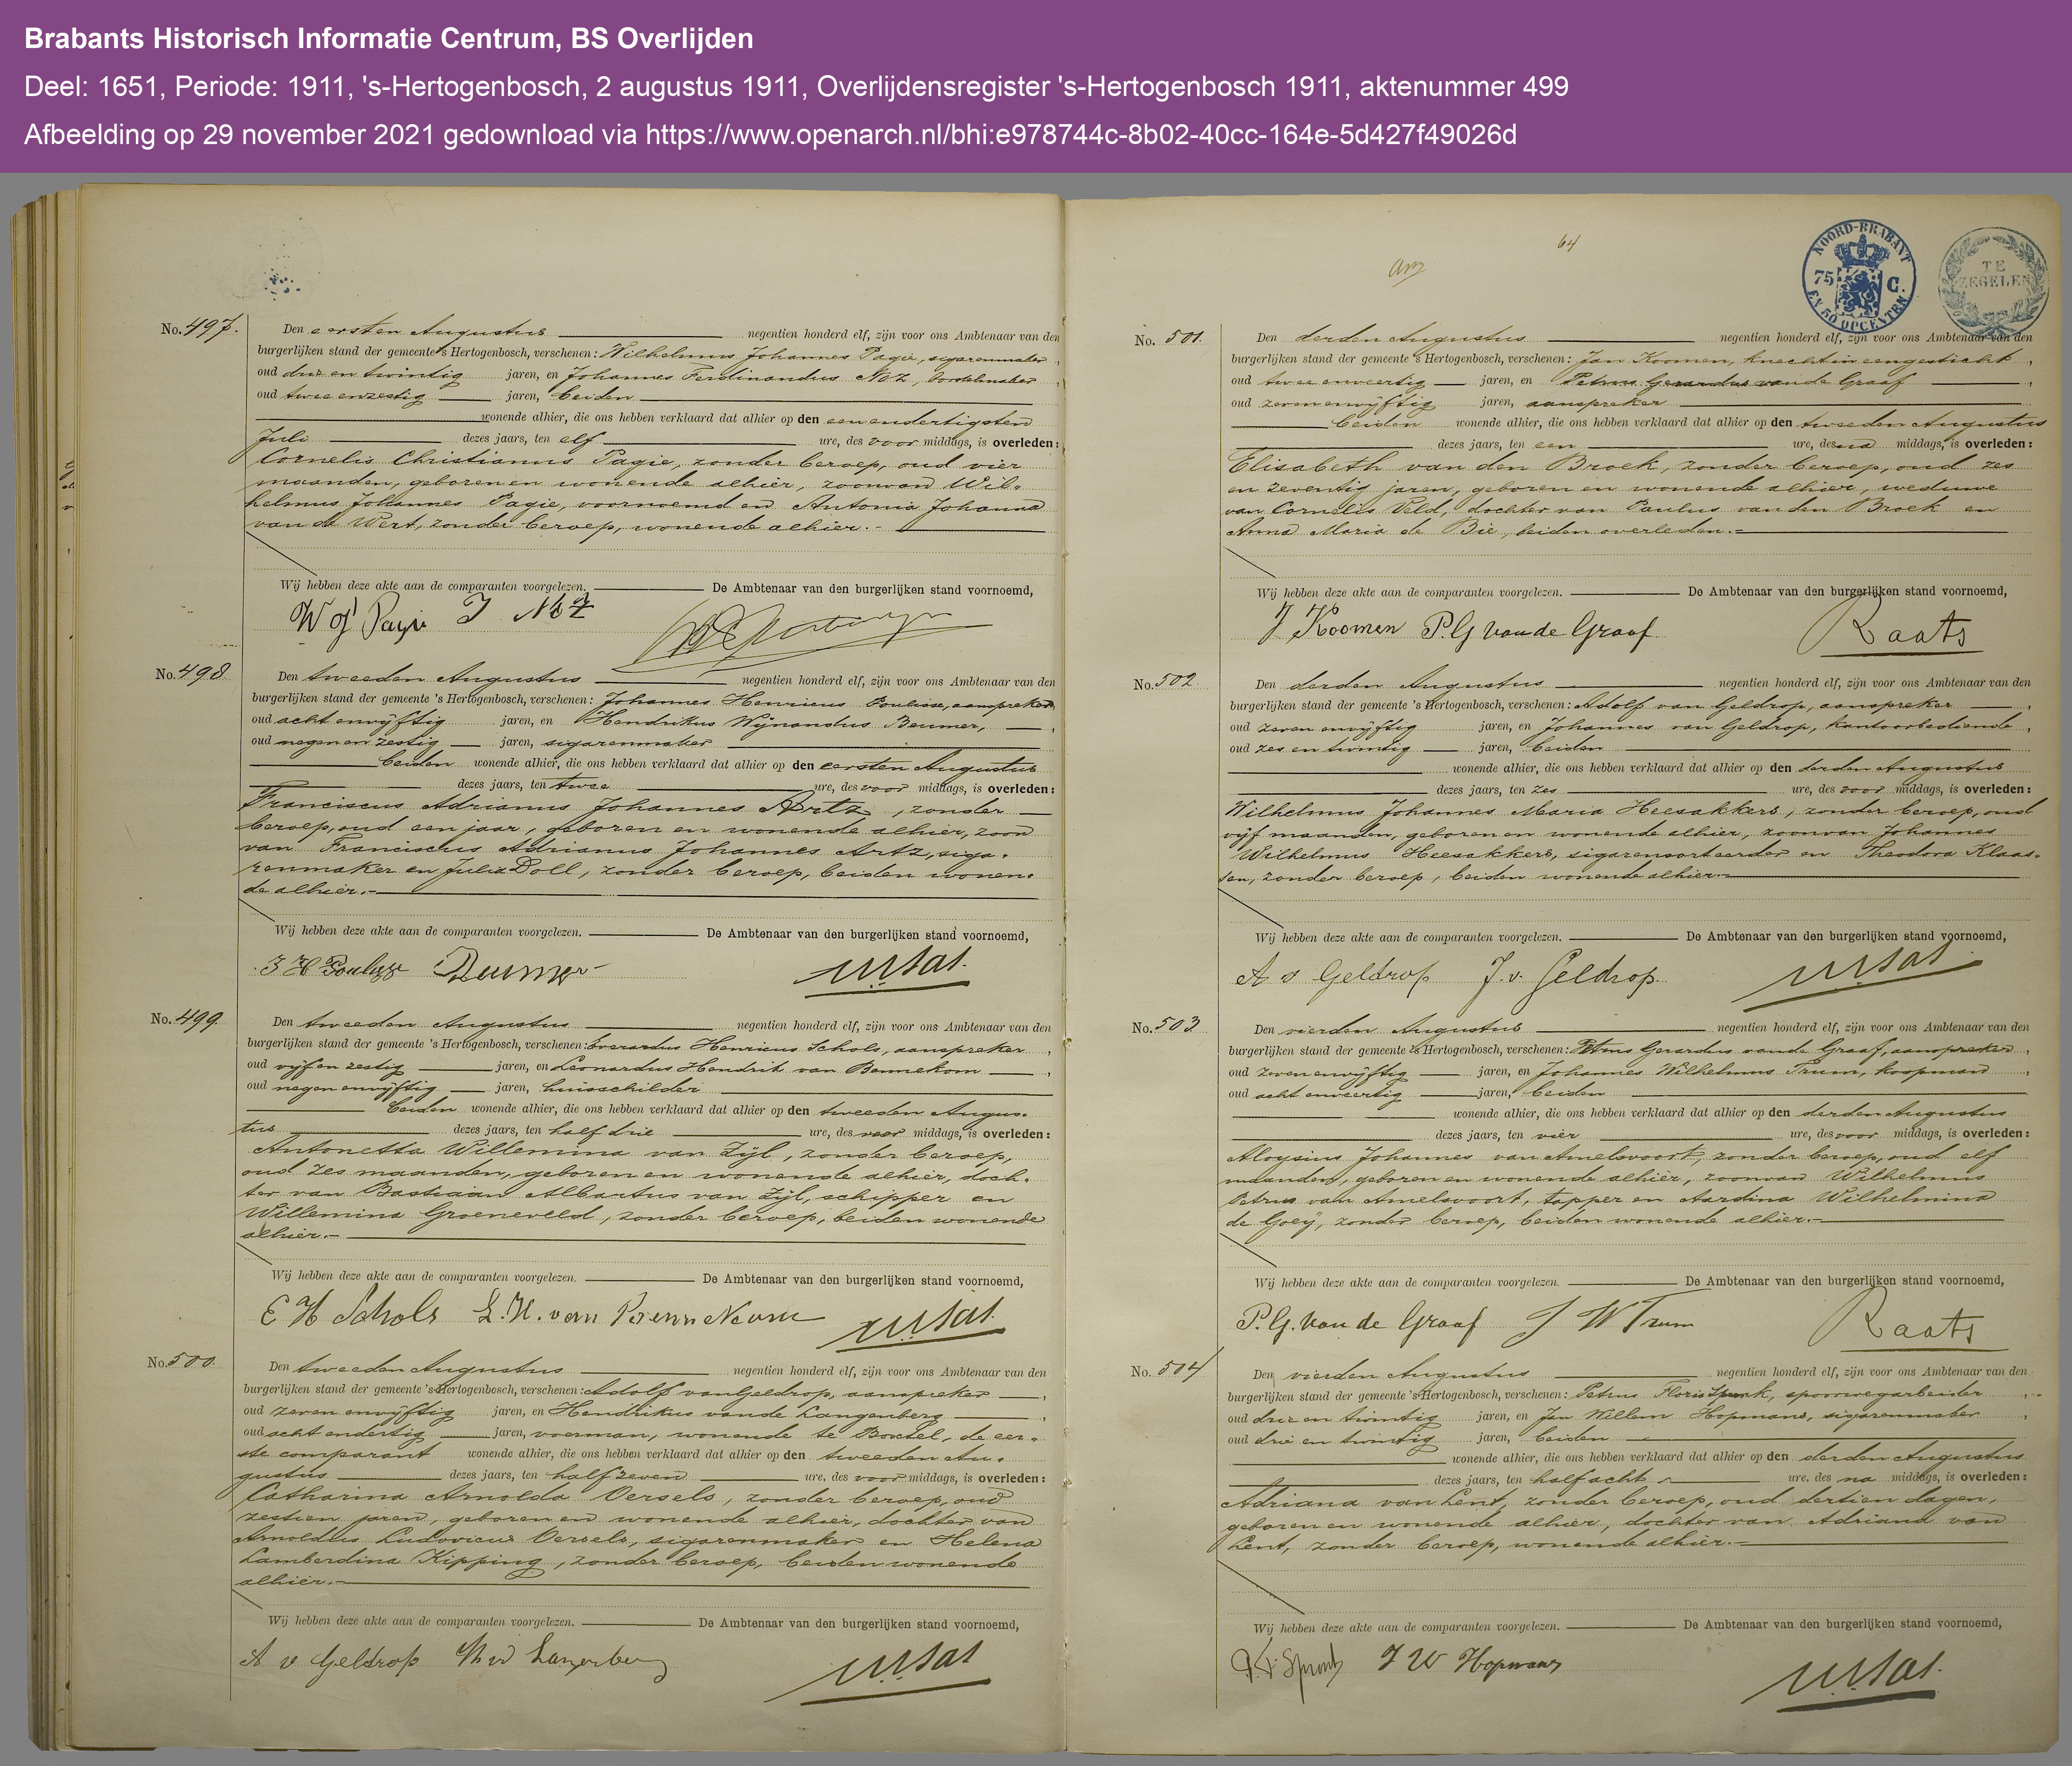 Brabants Historisch Informatie Centrum, BS Overlijden
Deel: 1651, Periode: 1911, 's-Hertogenbosch, 2 augustus 1911, Overlijdensregister 's-Hertogenbosch 1911, aktenummer 499
Afbeelding op 29 november 2021 gedownload via https://www.openarch.nl/bhi:e978744c-8b02-40cc-164e-5d427f49026d
No. 497.
Den eersten Augustus negentien honderd elf, zijn voor ons Ambtenaar van den
burgerlijken stand der gemeente 's Hertogenbosch, verschenen: Wilhelmus Johannes Pagie, sigarenmaker,
oud drie en twintig jaren, en Johannes Ferdinandus Noz, borstelmaker,
oud twee en zestig jaren, beiden
wonende alhier, die ons hebben verklaard dat alhier op den een en dertigsten
Juli dezes jaars, ten elf ure, des voor middags, is overleden:
Cornelis Christianus Pagie, zonder beroep, oud vier
maanden, geboren en wonende alhier, zoon van Wil-
helmus Johannes Pagie, voornoemd en Antonia Johanna
van de Wert, zonder beroep, wonende alhier.-
Wij hebben deze akte aan de comparanten voorgelezen. De Ambtenaar van den burgerlijken stand voornoemd,
W J Pagie J Noz
No. 498.
Den tweeden Augustus negentien honderd elf, zijn voor ons Ambtenaar van den
burgerlijken stand der gemeente 's Hertogenbosch, verschenen: Johannes Henricus Poulisse, aanspreker,
oud acht en vijftig jaren, en Hendrikus Wijnandus Beumer,
oud negen en zestig jaren, sigarenmaker
beiden wonende alhier, die ons hebben verklaard dat alhier op den eersten Augustus
dezes jaars, ten twee ure, des voor middags, is overleden:
Franciscus Adrianus Johannes Artz, zonder
beroep, oud een jaar, geboren en wonende alhier, zoon
van Franciscus Adrianus Johannes Artz, siga-
renmaker en Julia Doll, zonder beroep, beiden wonen-
de alhier.-
Wij hebben deze akte aan de comparanten voorgelezen. De Ambtenaar van den burgerlijken stand voornoemd,
J H Poulisse Beumer
No. 499.
Den tweeden Augustus negentien honderd elf, zijn voor ons Ambtenaar van den
burgerlijken stand der gemeente 's Hertogenbosch, verschenen: Everardus Henricus Schols, aanspreker,
oud vijf en zestig jaren, en Leonardus Hendrik van Bennekom,
oud negen en vijftig jaren, huisschilder
beiden wonende alhier, die ons hebben verklaard dat alhier op den tweeden Augus-
tus dezes jaars, ten half drie ure, des voor middags, is overleden:
Antonetta Willemina van Zijl, zonder beroep,
oud zes maanden, geboren en wonende alhier, doch-
ter van Bastiaan Albartus van Zijl, schipper en
Willemina Groeneveld, zonder beroep, beiden wonende
alhier.-
Wij hebben deze akte aan de comparanten voorgelezen. De Ambtenaar van den burgerlijken stand voornoemd,
E H Schols L. H. van Bennekom
No. 500.
Den tweeden Augustus negentien honderd elf, zijn voor ons Ambtenaar van den
burgerlijken stand der gemeente 's Hertogenbosch, verschenen: Adolf van Geldrop, aanspreker,
oud zeven en vijftig jaren, en Hendrikus van de Langenberg,
oud acht en dertig jaren, voerman, wonende te Boxtel, de eer-
ste comparant wonende alhier, die ons hebben verklaard dat alhier op den tweeden Au-
gustus dezes jaars, ten half zeven ure, des voor middags, is overleden:
Catharina Arnolda Versels, zonder beroep, oud
zestien jaren, geboren en wonende alhier, dochter van
Arnoldus Ludovicus Versels, sigarenmaker en Helena
Lamberdina Kipping, zonder beroep, beiden wonende
alhier.-
Wij hebben deze akte aan de comparanten voorgelezen. De Ambtenaar van den burgerlijken stand voornoemd,
A v Geldrop H vd Langenberg
64
NOORD-BRABANT
75 C.
EN 50 OPCENTEN
TE
ZEGELEN
No. 501.
Den derden Augustus negentien honderd elf, zijn voor ons Ambtenaar van den
burgerlijken stand der gemeente 's Hertogenbosch, verschenen: Jan Koomen, knecht in een gesticht,
oud twee en veertig jaren, en Petrus Gerardus van de Graaf,
oud zeven en vijftig jaren, aanspreker
beiden wonende alhier, die ons hebben verklaard dat alhier op den tweeden Augustus
dezes jaars, ten een ure, des na middags, is overleden:
Elisabeth van den Broek, zonder beroep, oud zes
en zeventig jaren, geboren en wonende alhier, weduwe
van Cornelis Veld, dochter van Paulus van den Broek en
Anna Maria de Bie, beiden overleden.-
Wij hebben deze akte aan de comparanten voorgelezen. De Ambtenaar van den burgerlijken stand voornoemd,
J Koomen P. G van de Graaf Raats
No. 502.
Den derden Augustus negentien honderd elf, zijn voor ons Ambtenaar van den
burgerlijken stand der gemeente 's Hertogenbosch, verschenen: Adolf van Geldrop, aanspreker,
oud zeven en vijftig jaren, en Johannes van Geldrop, kantoorbediende,
oud zes en twintig jaren, beiden
wonende alhier, die ons hebben verklaard dat alhier op den derden Augustus
dezes jaars, ten zes ure, des voor middags, is overleden:
Wilhelmus Johannes Maria Heesakkers, zonder beroep, oud
vijf maanden, geboren en wonende alhier, zoon van Johannes
Wilhelmus Heesakkers, sigarensorteerder en Theodora Klaas-
sen, zonder beroep, beiden wonende alhier.-
Wij hebben deze akte aan de comparanten voorgelezen. De Ambtenaar van den burgerlijken stand voornoemd,
A v Geldrop J. v. Geldrop.
No. 503
Den vierden Augustus negentien honderd elf, zijn voor ons Ambtenaar van den
burgerlijken stand der gemeente 's Hertogenbosch, verschenen: Petrus Gerardus van de Graaf, aanspreker,
oud zeven en vijftig jaren, en Johannes Wilhelmus Trum, koopman,
oud acht en veertig jaren, beiden
wonende alhier, die ons hebben verklaard dat alhier op den derden Augustus
dezes jaars, ten vier ure, des voor middags, is overleden:
Aloysius Johannes van Amelsvoort, zonder beroep, oud elf
maanden, geboren en wonende alhier, zoon van Wilhelmus
Petrus van Amelsvoort, tapper en Aardina Wilhelmina
de Goeij, zonder beroep, beiden wonende alhier.-
Wij hebben deze akte aan de comparanten voorgelezen. De Ambtenaar van den burgerlijken stand voornoemd,
P. G. van de Graaf J W Trum Raats
No. 504
Den vierden Augustus negentien honderd elf, zijn voor ons Ambtenaar van den
burgerlijken stand der gemeente 's Hertogenbosch, verschenen: Petrus Floris Spronk, spoorwegarbeider,
oud drie en twintig jaren, en Jan Willem Hopmans, sigarenmaker,
oud drie en twintig jaren, beiden
wonende alhier, die ons hebben verklaard dat alhier op den derden Augustus
dezes jaars, ten half acht ure, des na middags, is overleden:
Adriana van Lent, zonder beroep, oud dertien dagen,
geboren en wonende alhier, dochter van Adriana van
Lent, zonder beroep, wonende alhier.-
Wij hebben deze akte aan de comparanten voorgelezen. De Ambtenaar van den burgerlijken stand voornoemd,
J W Hopmans